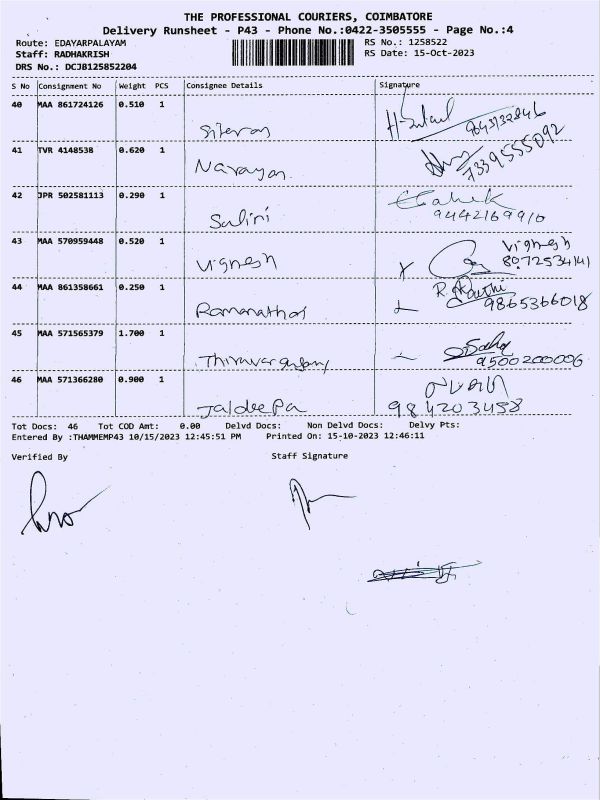 THE PROFESSIONAL COURIERS, COIMBATORE
Delivery Runsheet - P43 - Phone No.:0422-3505555 - Page No.:4
Route: EDAYARPALAYAM RS No.: 1258522
Staff: RADHAKRISH RS Date: 15-Oct-2023
DRS No.: DCJB125852204
S No Consignment No Weight PCS Consignee Details Signature
40 MAA 861724126 0.510 1
9843132846
41 TVR 4148538 0.620 1 Narayan
7339555092
42 JPR 502581113 0.290 1 Salini
9442169910
43 MAA 570959448 0.520 1 Vignesh Vignesh
8072534141
44 MAA 861358661 0.250 1 Ramanathan
9865366018
45 MAA 571565379 1.700 1
9500200006
46 MAA 571366280 0.900 1 Jaldeepa
984203458
Tot Docs: 46 Tot COD Amt: 0.00 Delvd Docs: Non Delvd Docs: Delvy Pts:
Entered By :THAMMEMP43 10/15/2023 12:45:51 PM Printed On: 15-10-2023 12:46:11
Verified By Staff Signature